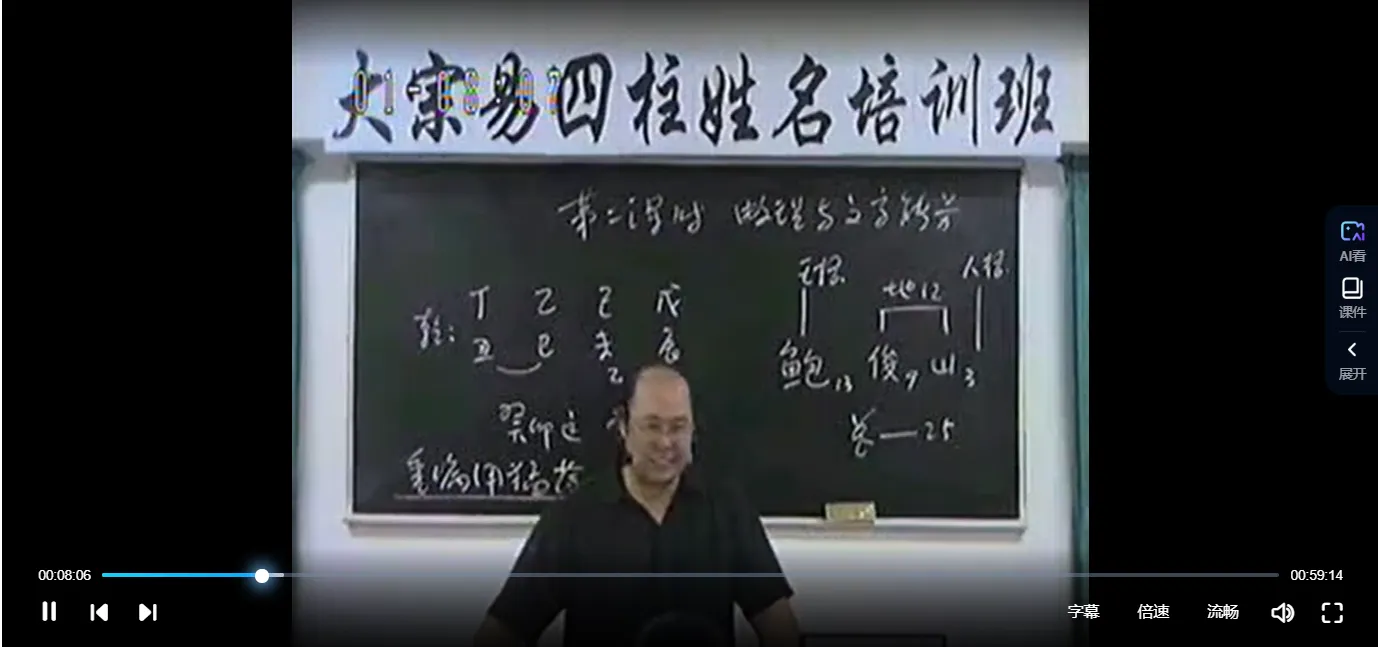 大宗易四柱姓名培训班
第二课时 数理与文字能量
天格 人格
地12
乾: 丁 乙 己 戊
丑 巳 未 辰
乙
鲍13 俊9 山3
总—25
重病用猛药
AI看
课件
展开
00:08:06
00:59:14
字幕 倍速 流畅